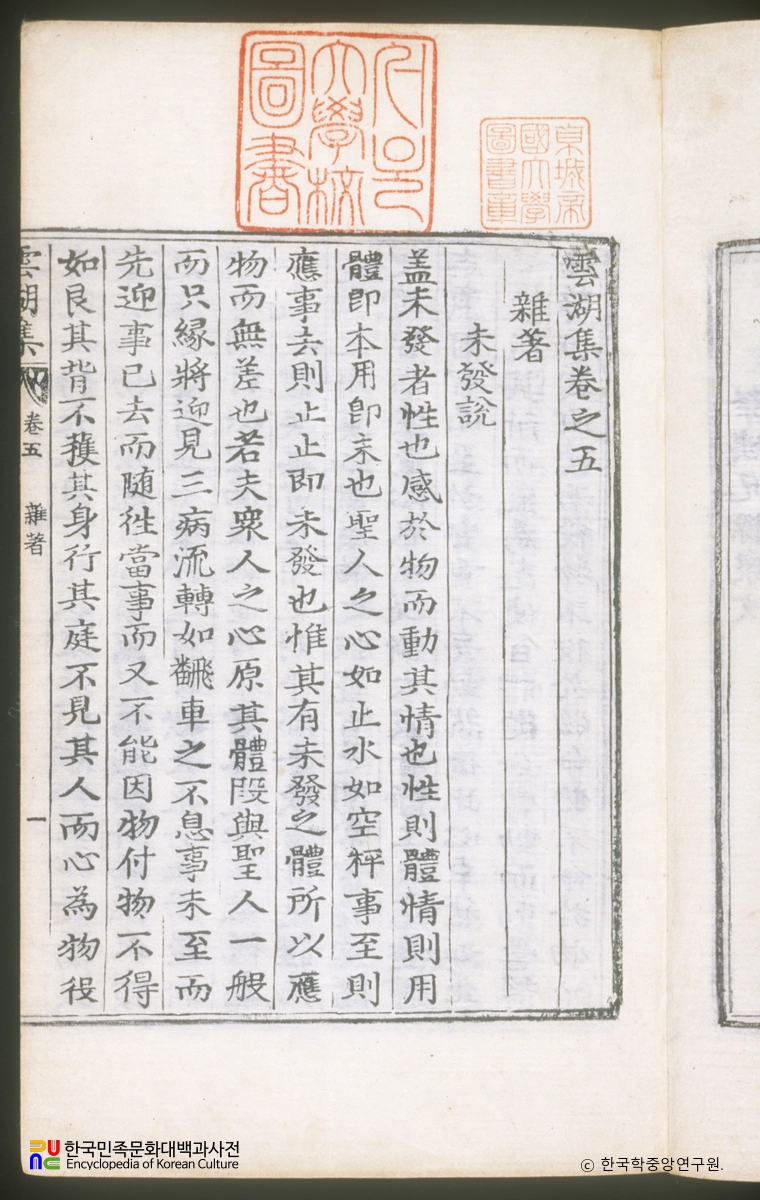 雲湖集卷之五
雜著
未發說
盖未發者性也感於物而動其情也性則體情則用
體即本用即末也聖人之心如止水如空枰事至則
應事去則止止即未發也惟其有未發之體所以應
物而無差也若夫衆人之心原其體段與聖人一般
而只緣將迎見三病流轉如飜車之不息事未至而
先迎事已去而随徃當事而又不能因物付物不得
如艮其背不獲其身行其庭不見其人而心為物役
雲湖集
卷五
雜著
一
서울
大學校
圖書
京城帝
國大學
圖書章
한국민족문화대백과사전
Encyclopedia of Korean Culture
© 한국학중앙연구원.